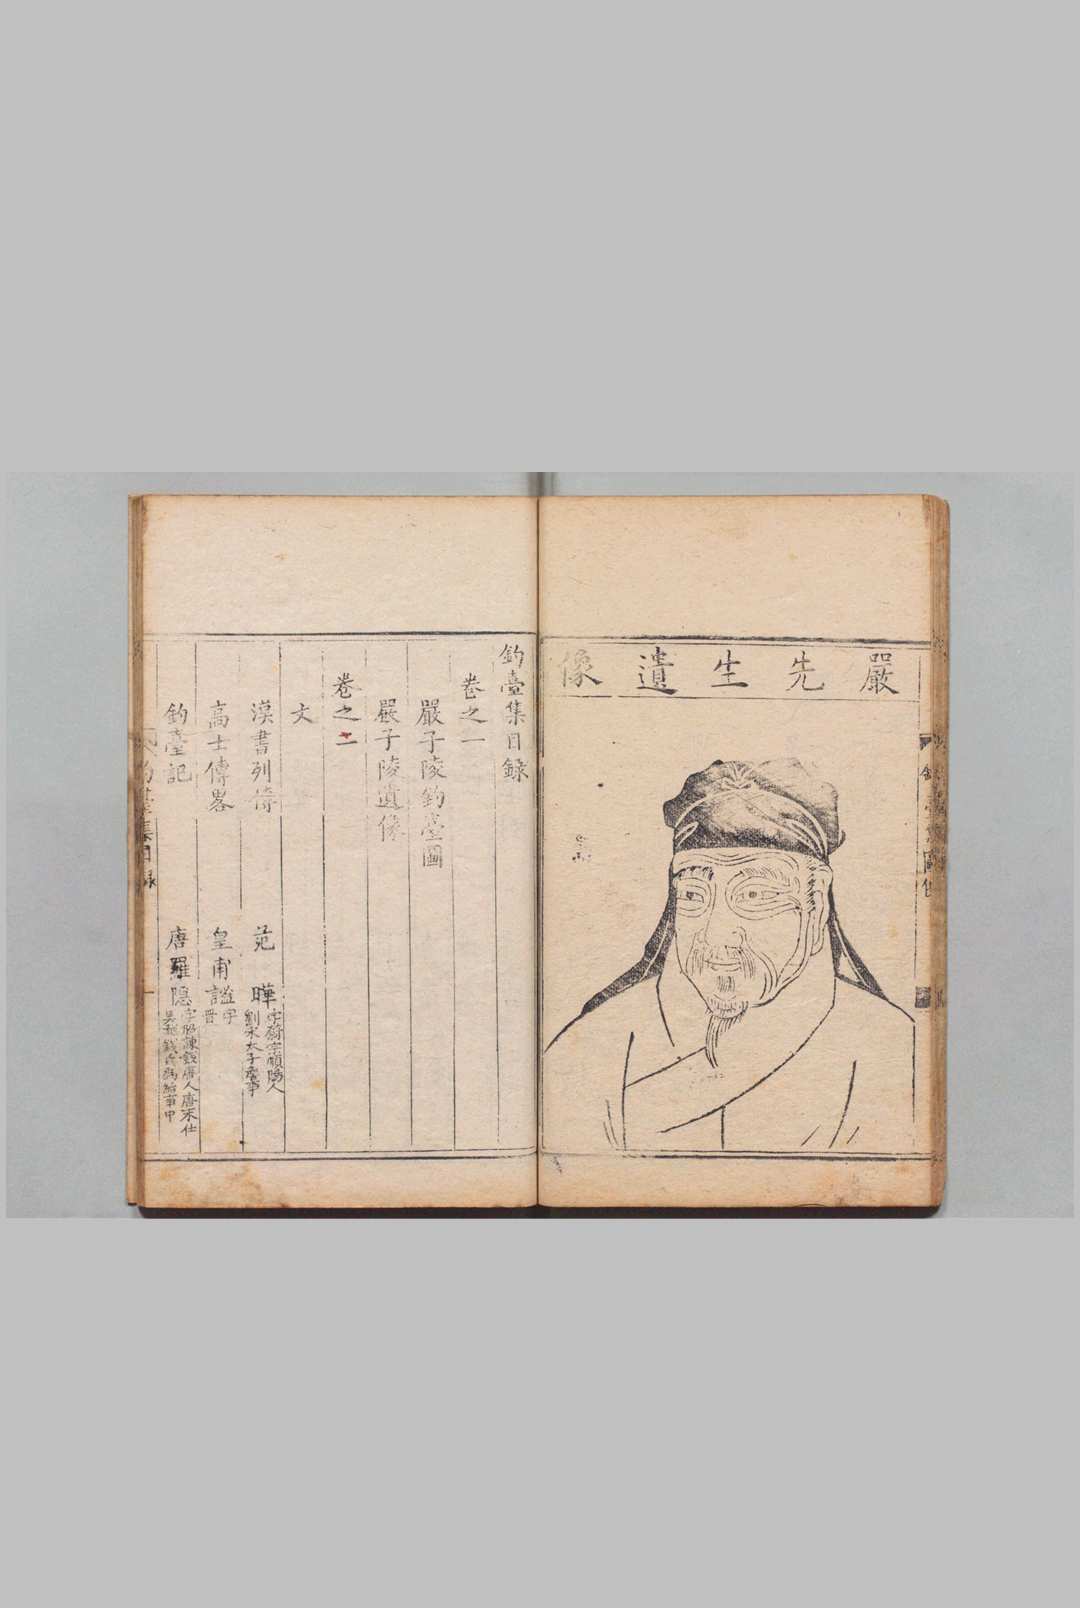 嚴先生遺像
釣臺集目錄
卷之一
嚴子陵釣臺圖
嚴子陵遺像
卷之二
文
漢書列傳 范曄 字蔚宗順陽人 劉宋太子詹事
高士傳畧 皇甫謐 字 晋
釣臺記 唐羅隱 字昭諫錢唐人唐末仕 吳越錢氏爲給事中
釣臺集目錄